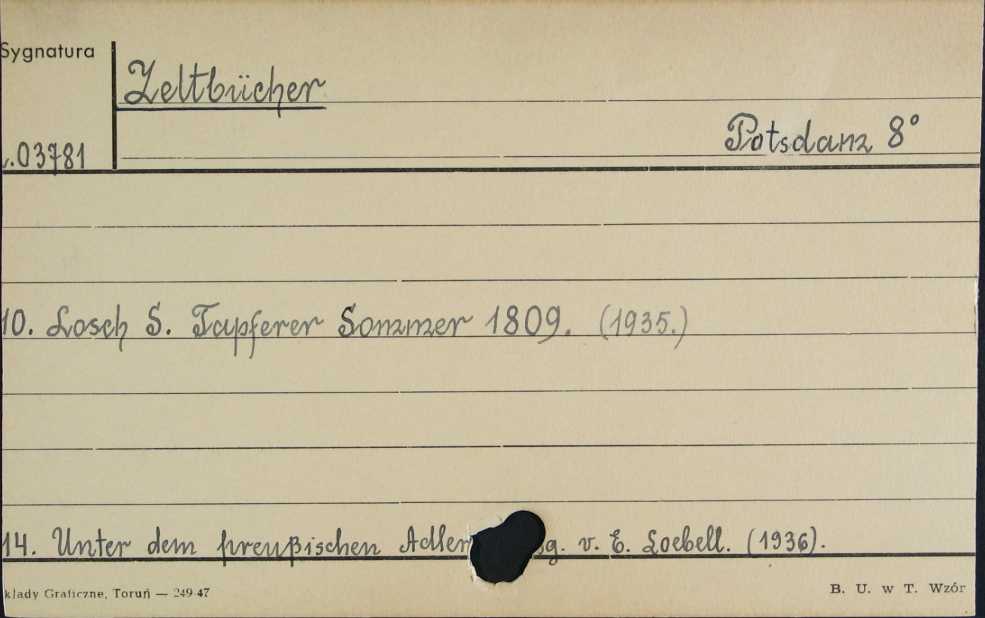 Sygnatura
Zeltbücher
Potsdam 8°
03781
10. Losch S. Tapferer Sommer 1809. (1935.)
14. Unter dem preußischen Adler g. v. E. Loebell. (1936).
kłady Graficzne, Toruń — 249-47
B. U. w T. Wzór